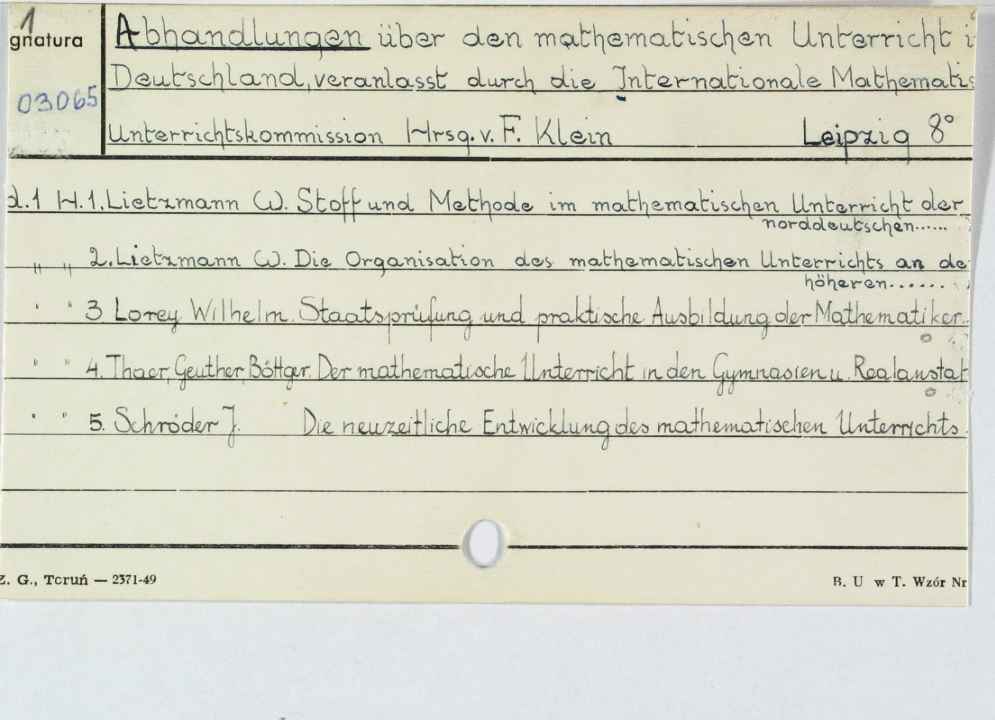 1
gnatura
03065
Abhandlungen über den mathematischen Unterricht i
Deutschland, veranlasst durch die Internationale Mathematis
Unterrichtskommission Hrsg. v. F. Klein Leipzig 8°
d.1 H.1. Lietzmann W. Stoff und Methode im mathematischen Unterricht der
norddeutschen......
" " 2. Lietzmann W. Die Organisation des mathematischen Unterrichts an de
höheren.......
" " 3 Lorey Wilhelm. Staatsprüfung und praktische Ausbildung der Mathematiker..
" " 4. Thaer, Geuther, Böttger. Der mathematische Unterricht in den Gymnasien u. Realanstat
" " 5. Schröder J. Die neuzeitliche Entwicklung des mathematischen Unterrichts.
Z. G., Toruń — 2371-49 B. U w T. Wzór Nr